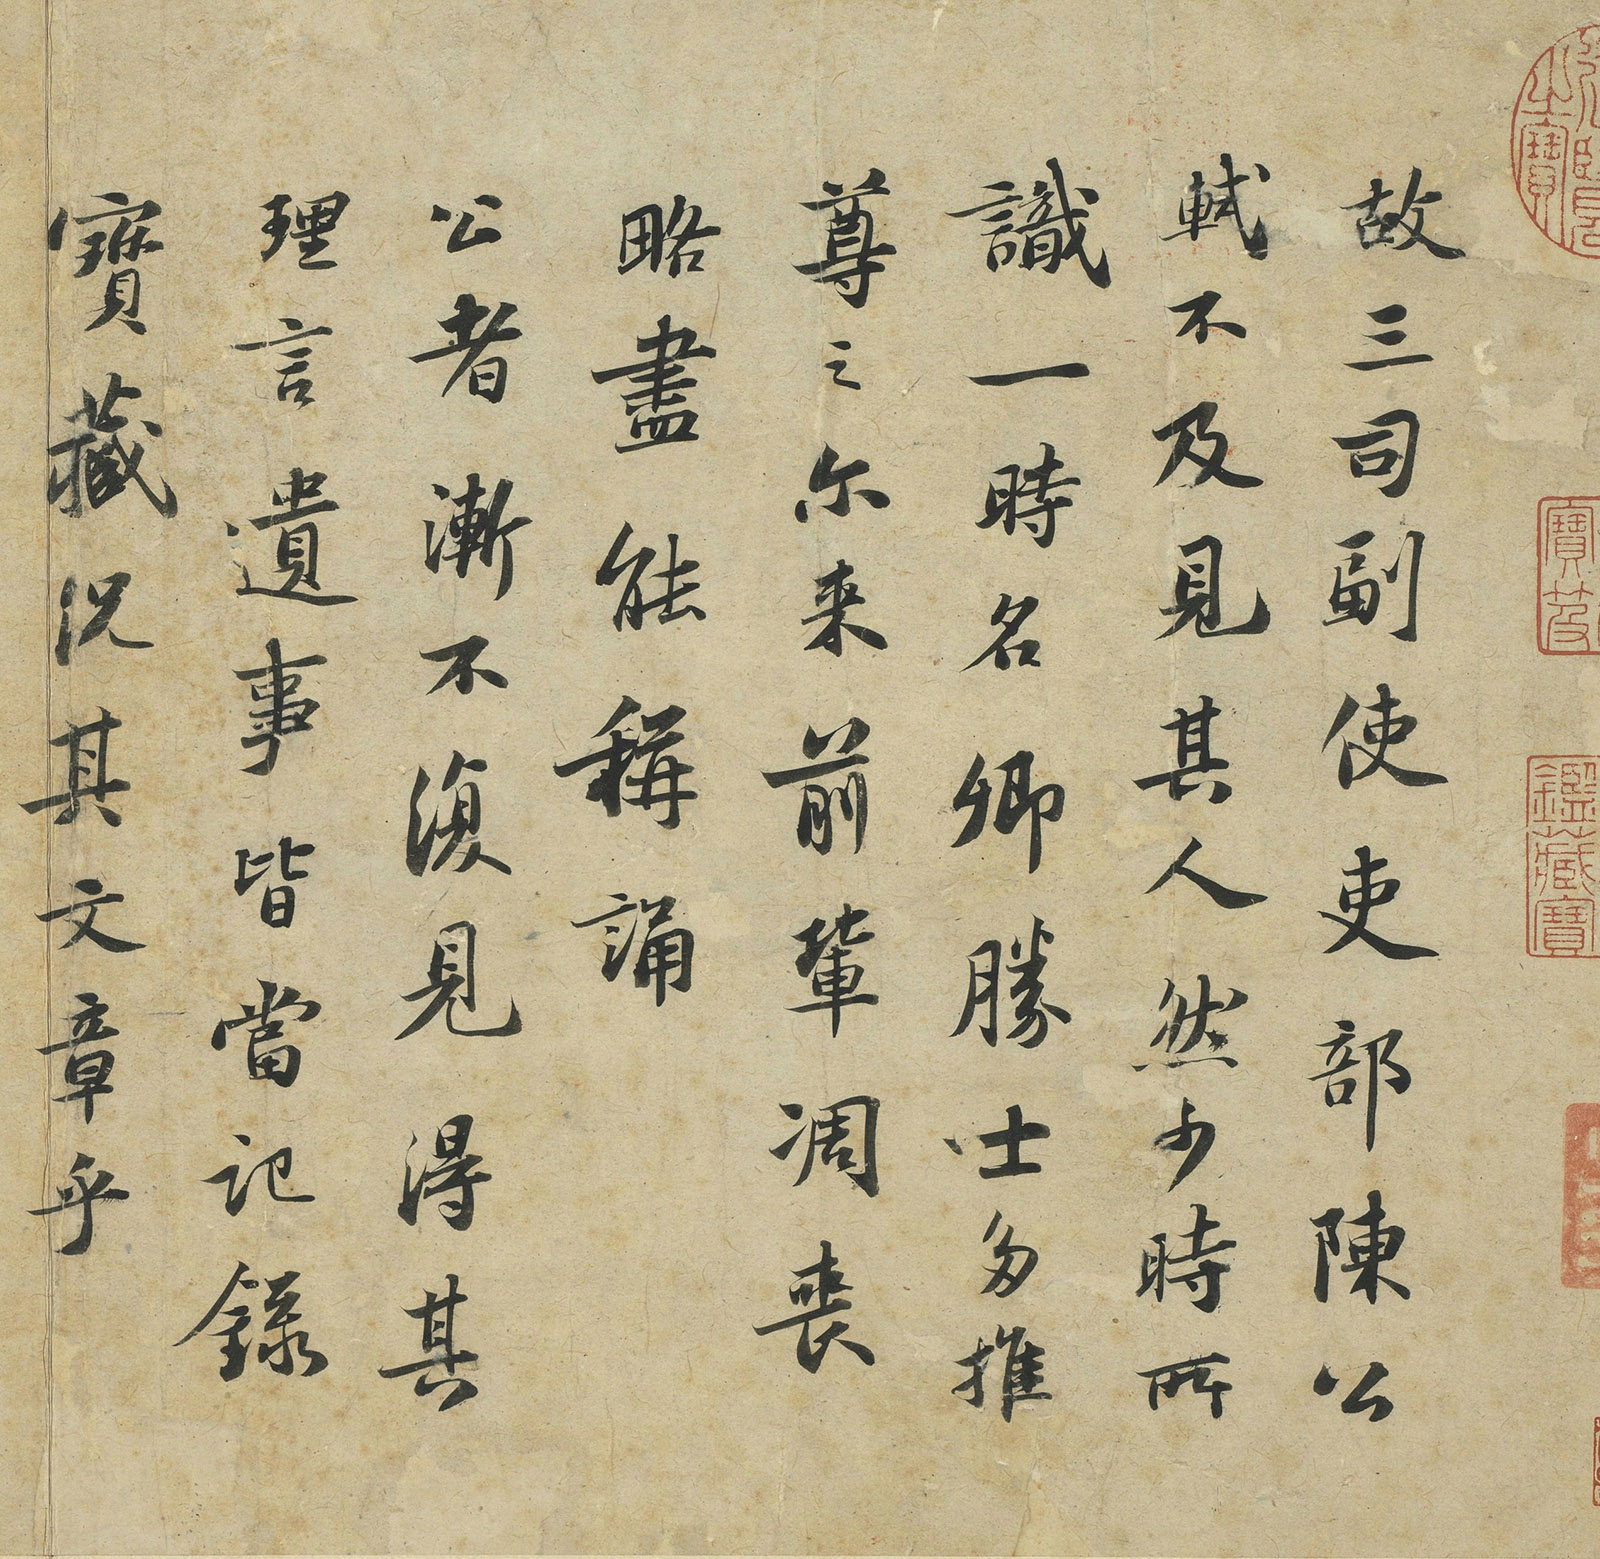 之寶
寶笈
鑑藏寶
故三司副使吏部陳公
軾不及見其人然少時所
識一時名卿勝士多推
尊之尓来前輩凋喪
略盡能稱誦
公者漸不復見得其
理言遺事皆當記錄
寶藏況其文章乎